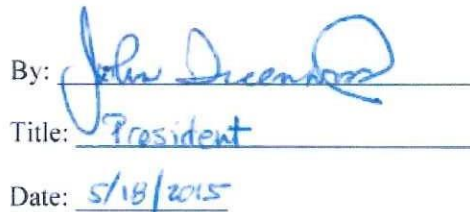 By: John
Title: President
Date: 5/18/2015